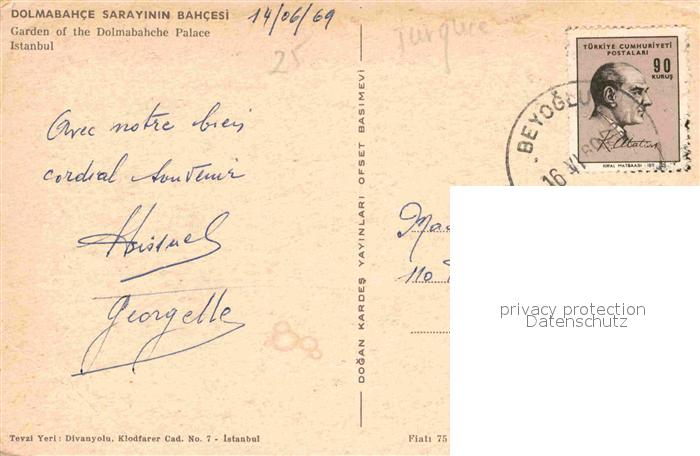 DOLMABAHÇE SARAYININ BAHÇESİ
Garden of the Dolmabahche Palace
Istanbul
14/06/69
25
Turquie
TÜRKİYE CUMHURİYETİ
POSTALARI
90
KURUŞ
K. Atatürk
BEYOĞLU
16 VI
Avec notre bien
cordial souvenir
Georgette
DOĞAN KARDEŞ YAYINLARI OFSET BASIMEVİ
110
privacy protection
Datenschutz
Tevzi Yeri : Divanyolu, Klodfarer Cad. No. 7 - İstanbul
Fiatı 75